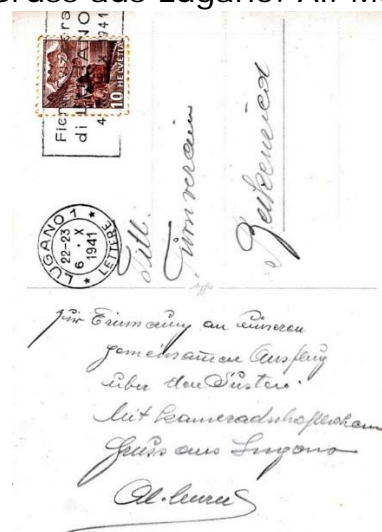 Gruss aus Lugano!
10 HELVETIA
di LUGANO
1941
LUGANO 1
22-23
6 · X
1941
LETTERE
Titl.
Turnverein
Beckenried
Zur Erinnerung an unseren
gemeinsamen Ausflug
über den Susten.
Mit kameradschaftlichem
Gruss aus Lugano